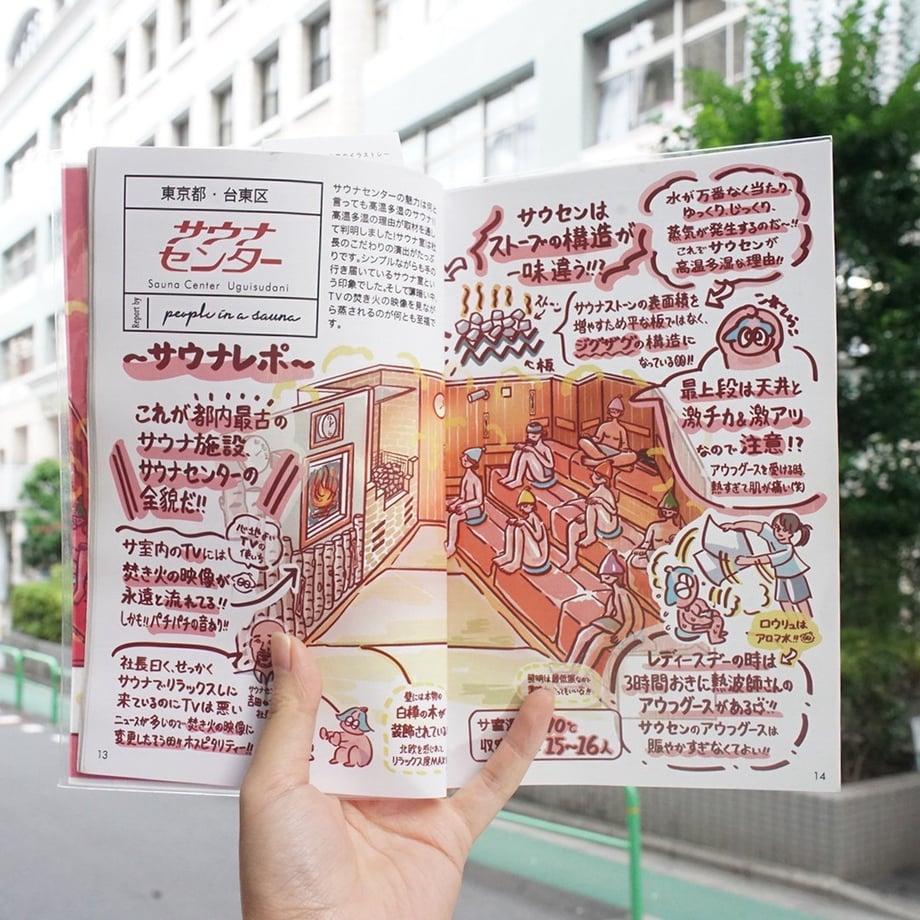 東京都・台東区
サウナ
センター
Sauna Center Uguisudani
Report by
people in a sauna
サウナセンターの魅力は何と
言っても高温多湿のサウナ!
高温多湿の理由が取材を通し
て判明しました!サウナ室は社
長のこだわりの演出がたっぷ
りです。シンプルながらも手の
行き届いているサウナ室とい
う印象でした。そして薄暗い中、
TVの焚き火の映像を見なが
ら蒸されるのが何とも至福で
す。
〜サウナレポ〜
これが都内最古の
サウナ施設、
サウナセンターの
全貌だ!!
心地よい
TVの
使い方
サ室内のTVには
焚き火の映像が
永遠と流れてる!!
しかも!!パチパチの音あり!!
社長曰く、せっかく
サウナでリラックスしに
来ているのにTVは悪い
ニュースが多いので焚き火の映像に
変更したそう!!ホスピタリティー!!
壁には本物の
白樺の木が
装飾されている
北欧を感じれて
リラックス度MAX
13
サウセンは
ストーブの構造が
一味違う!!?
水が万番なく当たり、
ゆっくり、じっくり、
蒸気が発生するのだ〜!!
これでサウセンが
高温多湿な理由!!
サウナストーンの表面積を
増やすため平な板ではなく、
ジグザグの構造に
なっている!!
板
最上段は天井と
激チカ&激アツ
なので注意!?
アウフグースを受ける時、
熱すぎて肌が痛い(笑)
ロウリュは
アロマ水!!
レディースデーの時は
3時間おきに熱波師さんの
アウフグースがあるゾ!!
サウセンのアウフグースは
賑やかすぎなくてよい!!
15〜16人
14